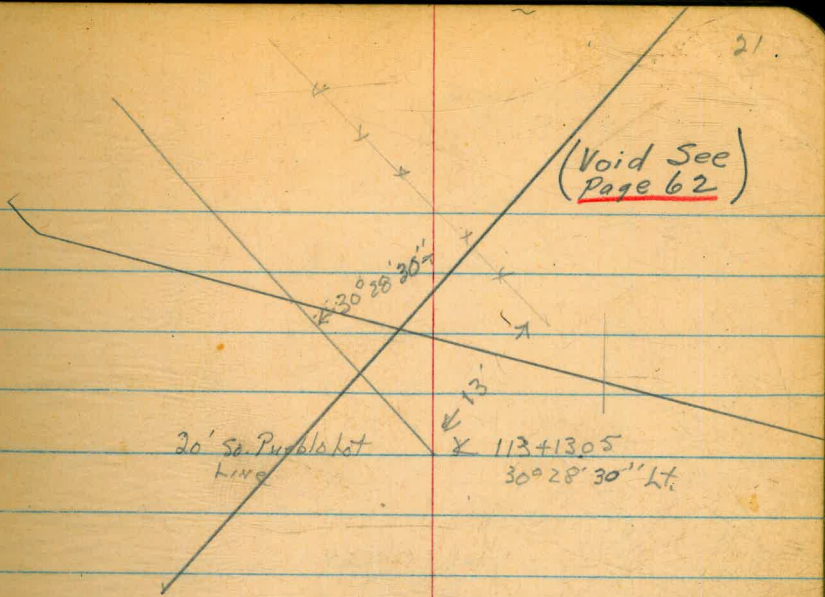 21.
(Void See
Page 62)
30° 28' 30"
13'
20' So. Pueblo Lot
Line
113+13.05
30° 28' 30" Lt.